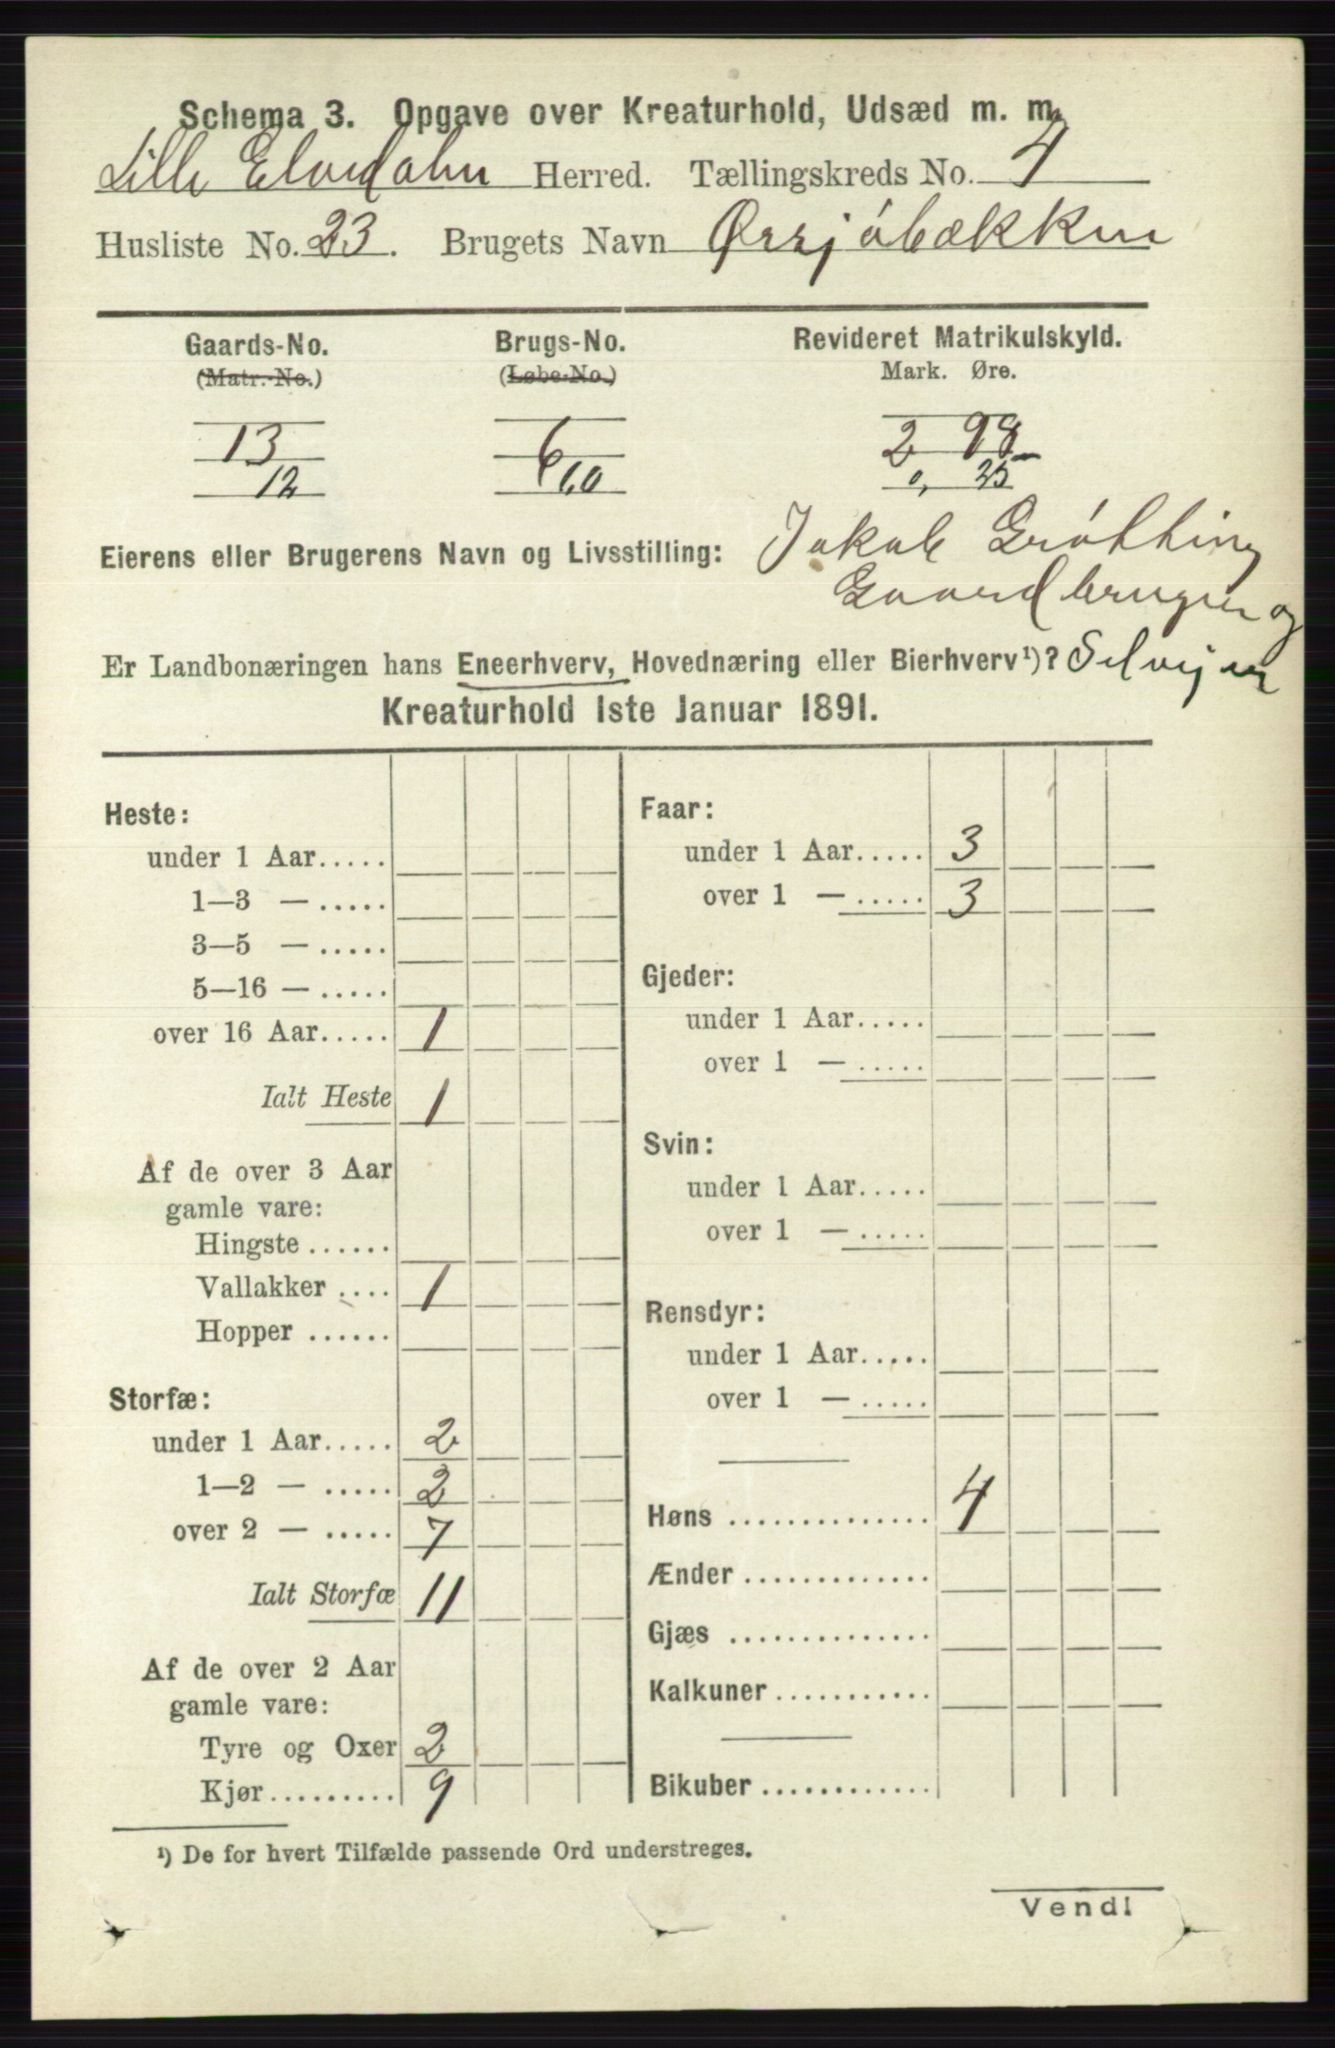 Schema 3. Opgave over Kreaturhold, Udsæd m. m.
Lille Elvedalen Herred. Tællingskreds No. 4
Husliste No. 23. Brugets Navn Øresjøbækken
Gaards-No. Brugs-No. Revideret Matrikulskyld.
(Matr.-No.) (Løbe-No.) Mark. Øre.
13 6 2 98
12 0, 25
Eierens eller Brugerens Navn og Livsstilling: Jakob Grøtting
Gaardbruger og
Er Landbonæringen hans Eneerhverv, Hovednæring eller Bierhverv¹)? Selvejer
Kreaturhold 1ste Januar 1891.
Heste:
under 1 Aar.....
1—3 — .....
3—5 — .....
5—16 — .....
over 16 Aar..... 1
Ialt Heste 1
Af de over 3 Aar
gamle vare:
Hingste ......
Vallakker .... 1
Hopper ......
Storfæ:
under 1 Aar..... 2
1—2 — ..... 2
over 2 — ..... 7
Ialt Storfæ 11
Af de over 2 Aar
gamle vare:
Tyre og Oxer 2
Kjør......... 9
Faar:
under 1 Aar..... 3
over 1 — ..... 3
Gjeder:
under 1 Aar.....
over 1 — .....
Svin:
under 1 Aar.....
over 1 — .....
Rensdyr:
under 1 Aar.....
over 1 — .....
Høns .............. 4
Ænder .............
Gjæs ..............
Kalkuner ...........
Bikuber ............
¹) De for hvert Tilfælde passende Ord understreges.
Vend!